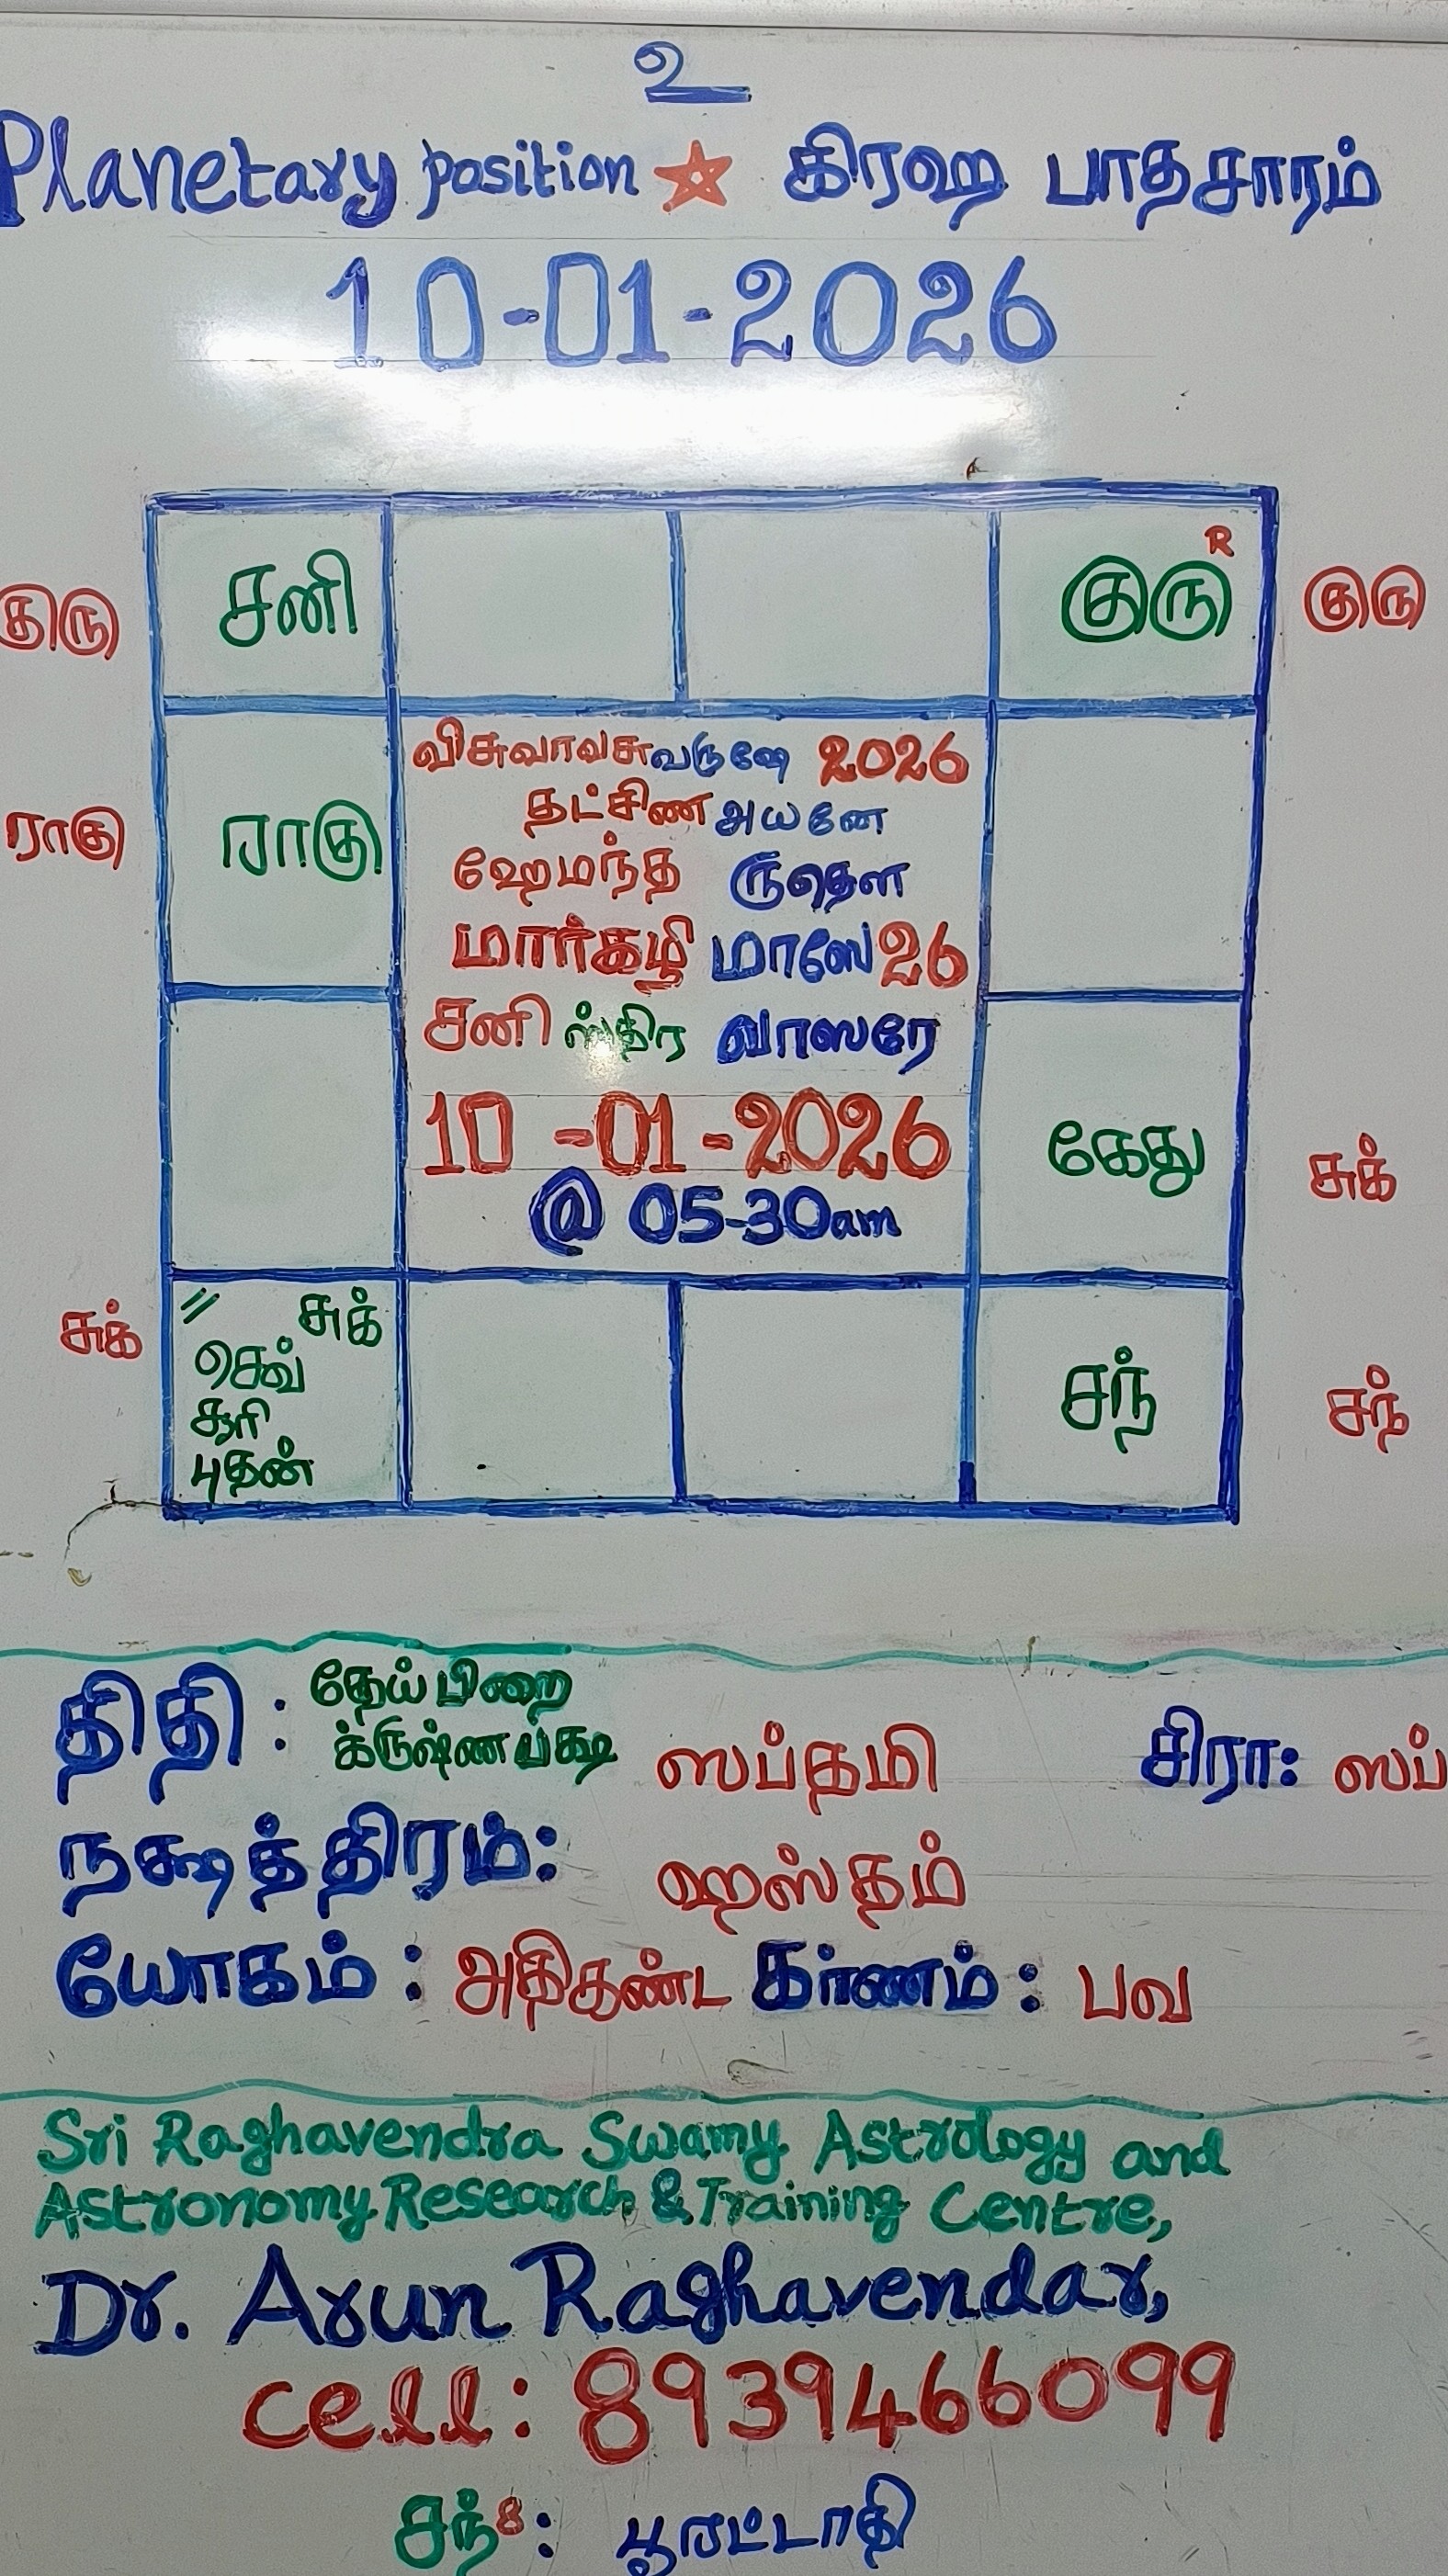 உ
Planetary position ☆ கிரஹ பாதசாரம்
10-01-2026
குரு சனி குரு R குரு
ராகு ராகு
விசுவாவசு வருஷே 2026
தட்சிண அயனே
ஹேமந்த ருதௌ
மார்கழி மாஸே 26
சனி ஸ்திர வாஸரே
10-01-2026
@ 05-30am
கேது சுக்
சுக் // சுக்
செவ்
சூரி
புதன்
சந் சந்
திதி : தேய்பிறை
க்ருஷ்ணபக்ஷ ஸப்தமி சிரா: ஸப்
நக்ஷத்திரம்: ஹஸ்தம்
யோகம் : அதிகண்ட கர்ணம் : பவ
Sri Raghavendra Swamy Astrology and
Astronomy Research & Training Centre,
Dr. Arun Raghavendar,
Cell: 8939466099
சந்8: பூரட்டாதி